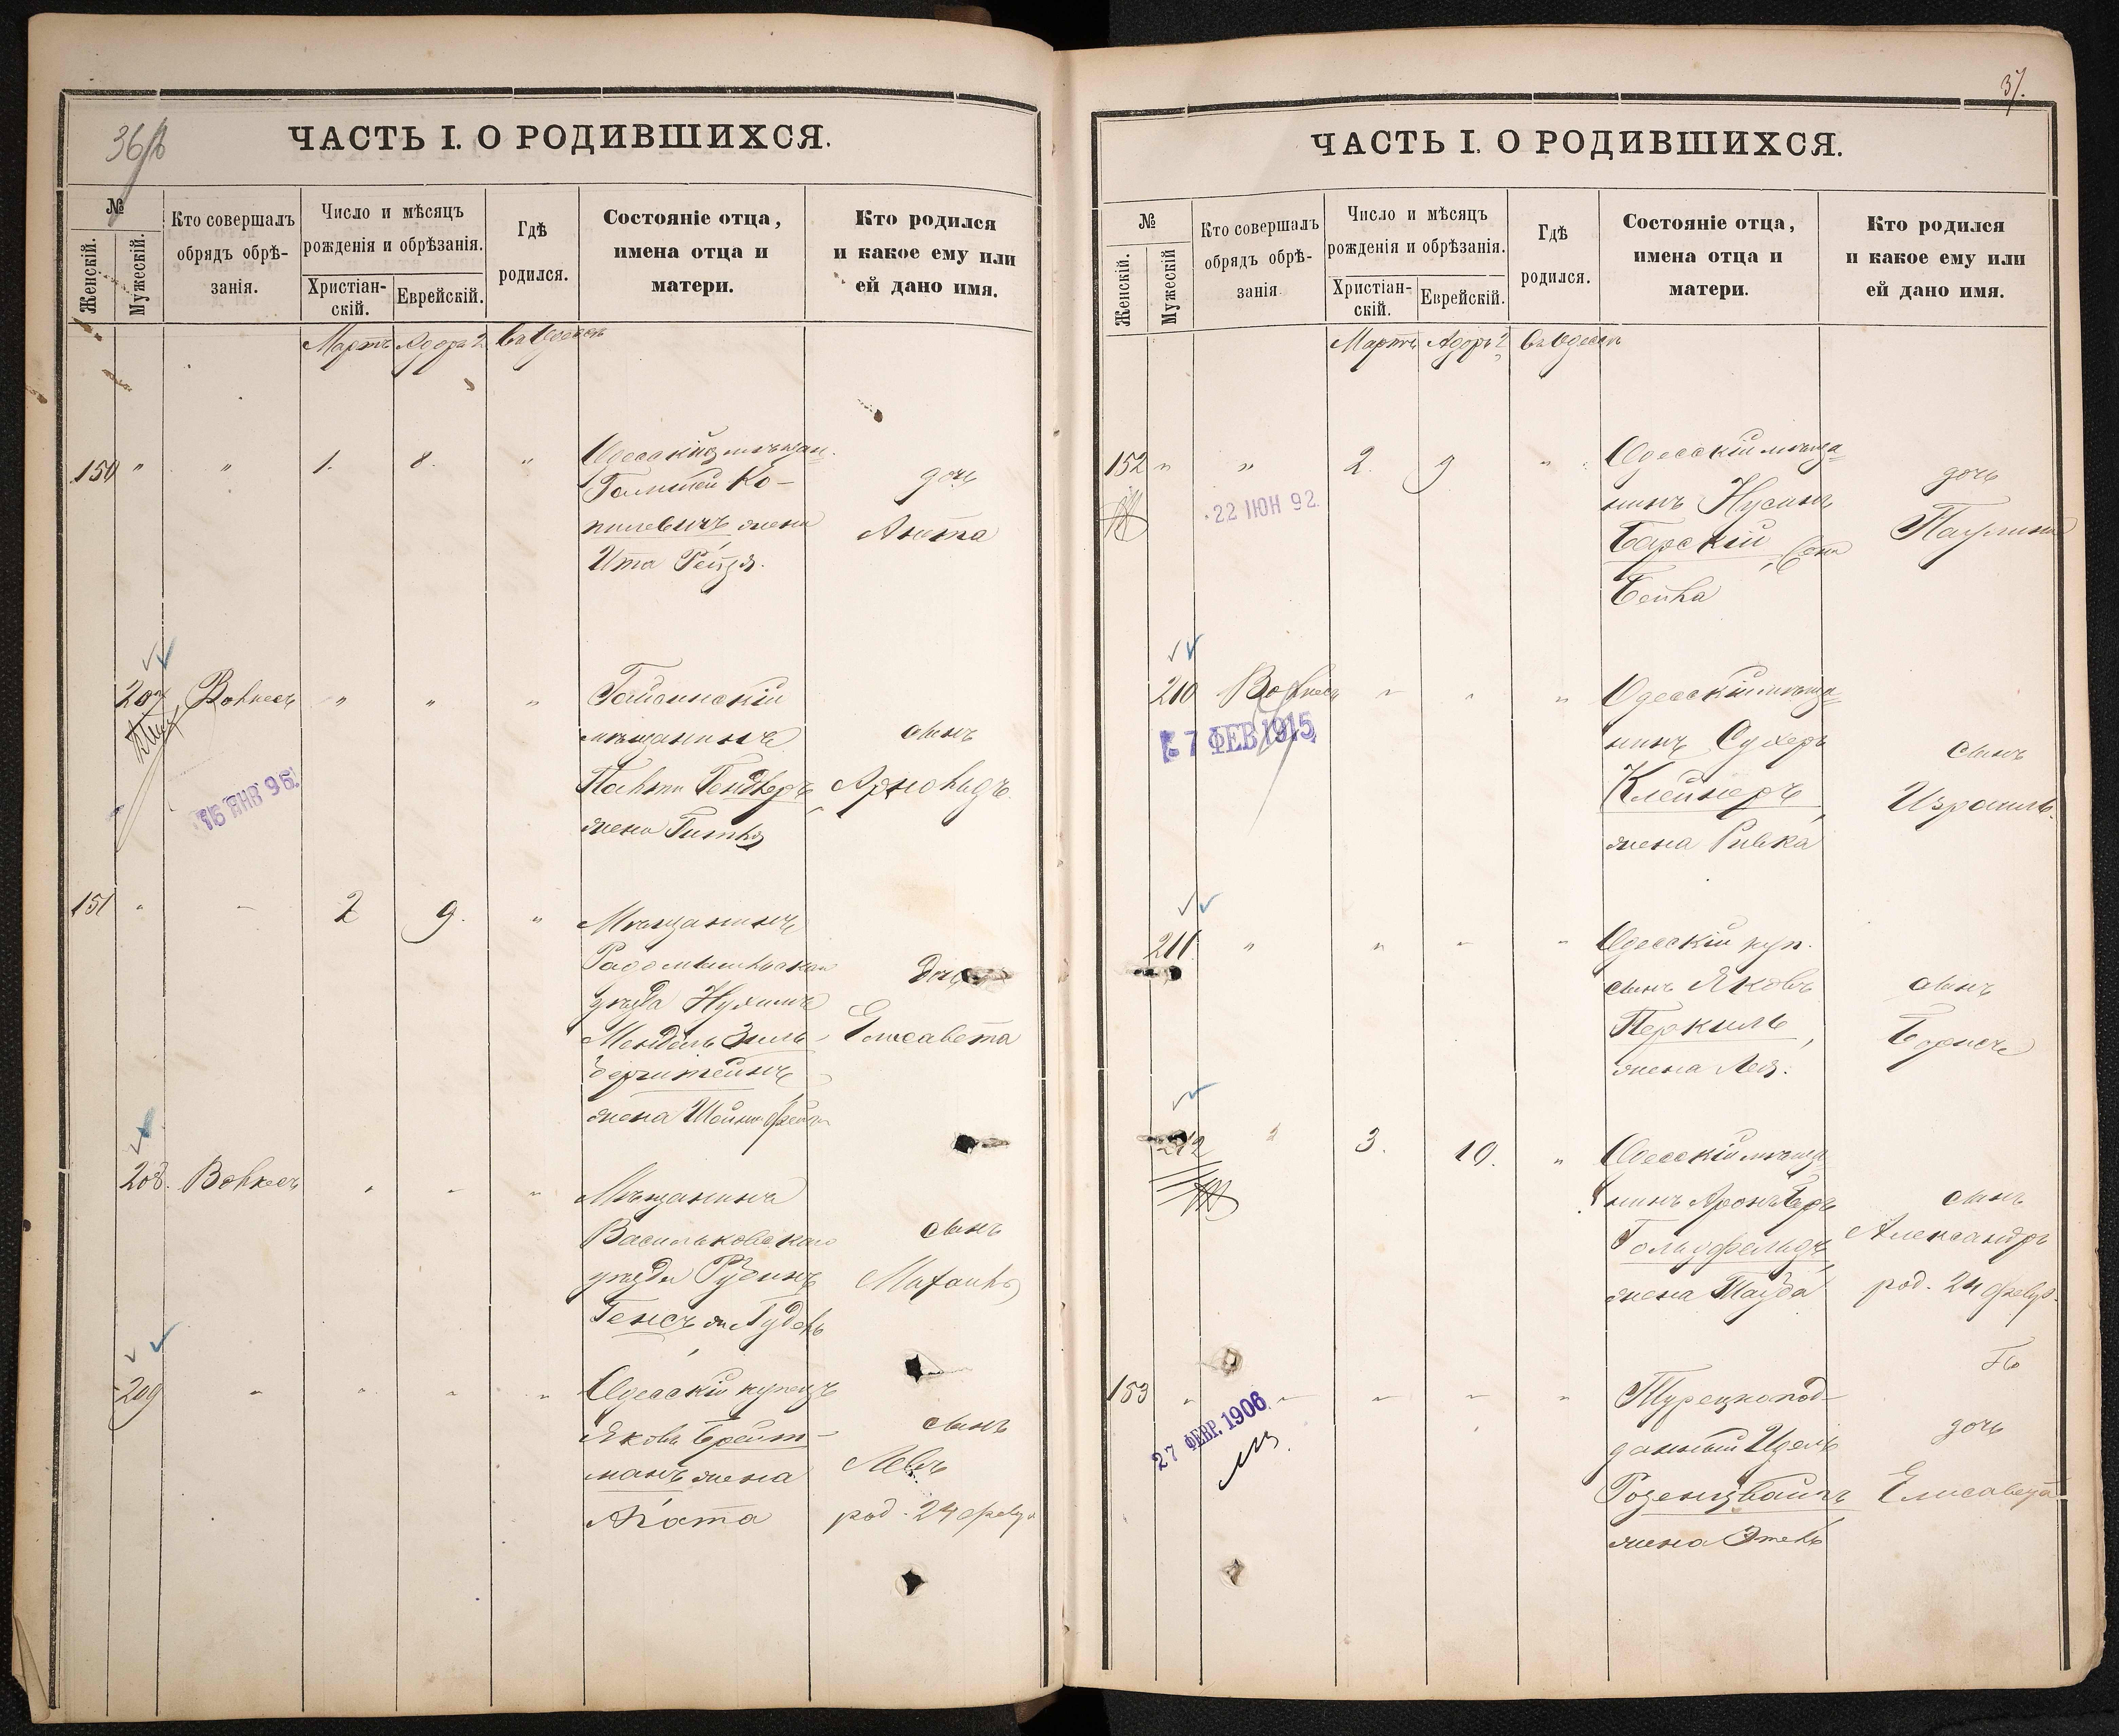 36 об
ЧАСТЬ I. О РОДИВШИХСЯ.
№
Женскій.
Мужескій.
Кто совершалъ
обрядъ обрѣ-
занія.
Число и мѣсяцъ
рожденія и обрѣзанія.
Христіан-
скій.
Еврейскій.
Гдѣ
родился.
Состояніе отца,
имена отца и
матери.
Кто родился
и какое ему или
ей дано имя.
Мартъ Адоръ 2 въ Одессѣ
150 " " 1. 8. "
Одесскій мѣщан.
Ко-
пилевичъ жена
Ита Рейзя.
дочь
Анета
207 Волкесъ " " "
Гайсинскій
мѣщанинъ
жена Гитля
сынъ
Арнольдъ
15 ЯНВ 96
151 " - 2 9. "
Мѣщанинъ
Радомысльскаго
уѣзда Нухимъ
Мендель Зиль-
берштейнъ
жена Шейна Фейга
дочь
Елисавета
208. Волкесъ
Мѣщанинъ
Васильковскаго
уѣзда Рувинъ
Генсъ ж. Гудель
сынъ
Михаилъ
209
Одесскій купецъ
Яковъ Брейт-
манъ жена
Агата
сынъ
Левъ
род. 24 февр.
37.
ЧАСТЬ I. О РОДИВШИХСЯ.
№
Женскій.
Мужескій
Кто совершалъ
обрядъ обрѣ-
занія
Число и мѣсяцъ
рожденія и обрѣзанія.
Христіан-
скій.
Еврейскій.
Гдѣ
родился.
Состояніе отца,
имена отца и
матери.
Кто родился
и какое ему или
ей дано имя.
Мартъ Адоръ 2 въ Одессѣ
152 " " 2. 9 "
22 ІЮН 92
Одесскій мѣща-
нинъ Нусинъ
Барскій, жена
Бейла
дочь
Паулина
210 Волкесъ " " "
7 ФЕВ 1915
Одесскій мѣща-
нинъ Сухеръ
Клейнеръ,
жена Ривка
сынъ
Израиль.
211 " " " "
Одесскій куп.
сынъ Яковъ
Перкиль,
жена Лея.
сынъ
Борисъ
212 3. 10. "
Одесскій мѣща-
нинъ Аронъ Беръ
Гольдфельдъ,
жена Тауба
сынъ
Александръ
род. 24 февр.
153
27 ФЕВР. 1906
Турецкопод-
данный Идель
Розенцвайгъ
жена Этель
дочь
Елисавета